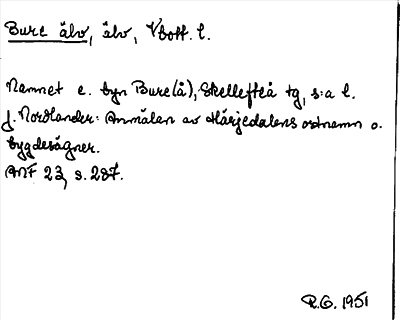 Bure älv, älv, Vbott. l.
Namnet e. byn Bure(å), Skellefteå tg, s:a l.
J. Nordlander: Anmälan av Härjedalens ortnamn o.
bygdesägner.
ANF 23, s. 287.
R.G. 1951